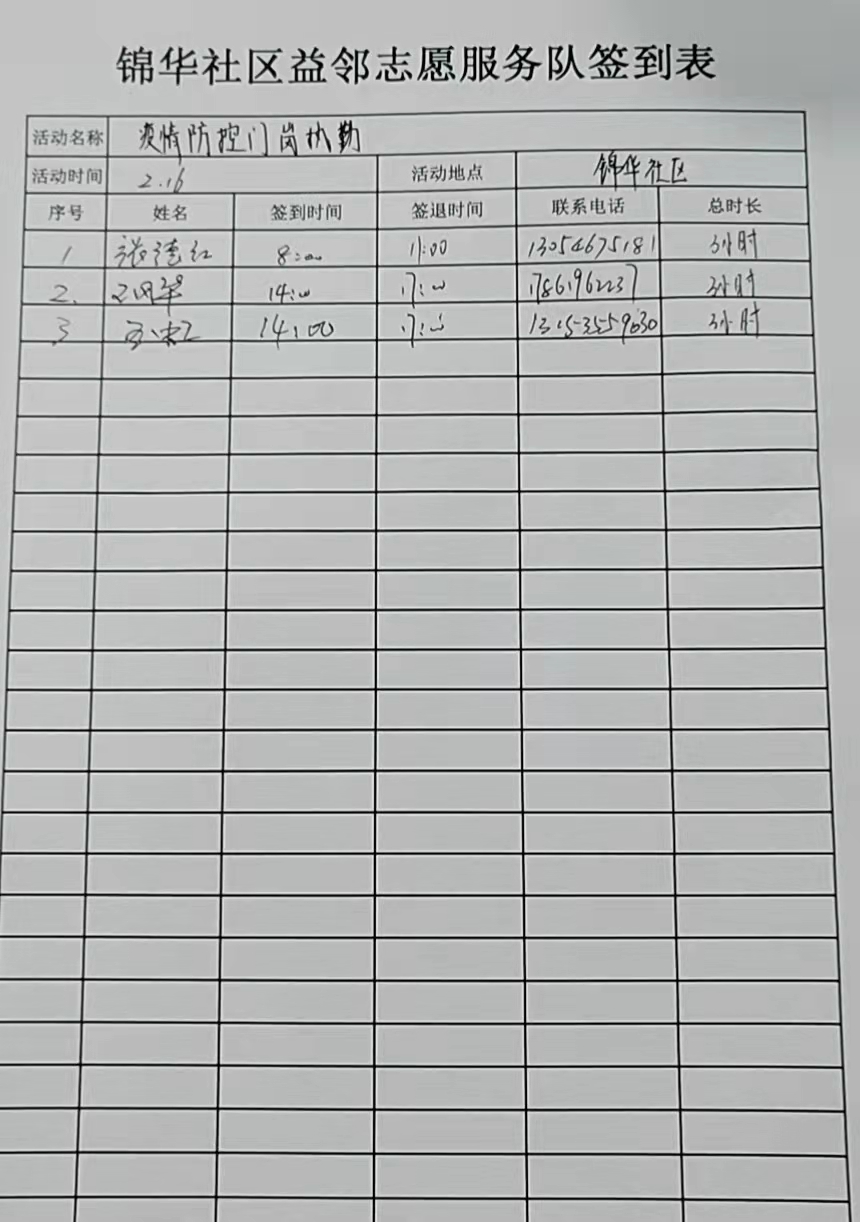 锦华社区益邻志愿服务队签到表
活动名称 疫情防控门岗执勤
活动时间 2.16 活动地点 锦华社区
序号 姓名 签到时间 签退时间 联系电话 总时长
1 张德红 8:00 11:00 13054675181 3小时
2. 14:00 17:00 3小时
3 14:00 17:00 3小时